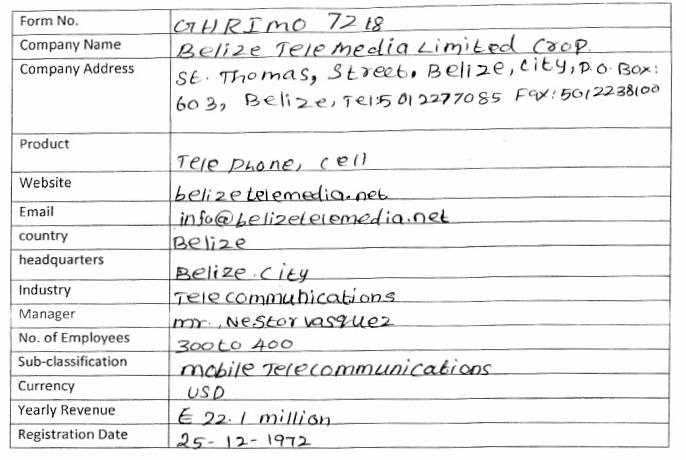 Form No. GHRIMO 7218
Company Name Belize Telemedia Limited Crop.
Company Address St. Thomas, Street, Belize, City, P.O. Box:
603, Belize, Tel:5012277085 Fax:5012238100
Product Telephone, cell
Website belizetelemedia.net
Email info@belizetelemedia.net
country Belize
headquarters Belize City
Industry Telecommunications
Manager mr. Nestor vasquez
No. of Employees 300 to 400
Sub-classification mobile Telecommunications
Currency USD
Yearly Revenue € 22.1 million
Registration Date 25-12-1972